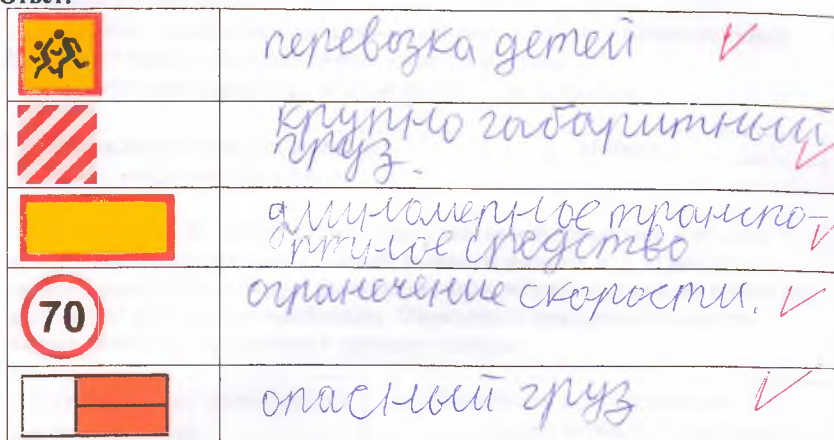 Ответ:
перевозка детей
крупно габаритный
груз.
длиномерное транспо-
ртное средство
70
ограничение скорости.
опасный груз